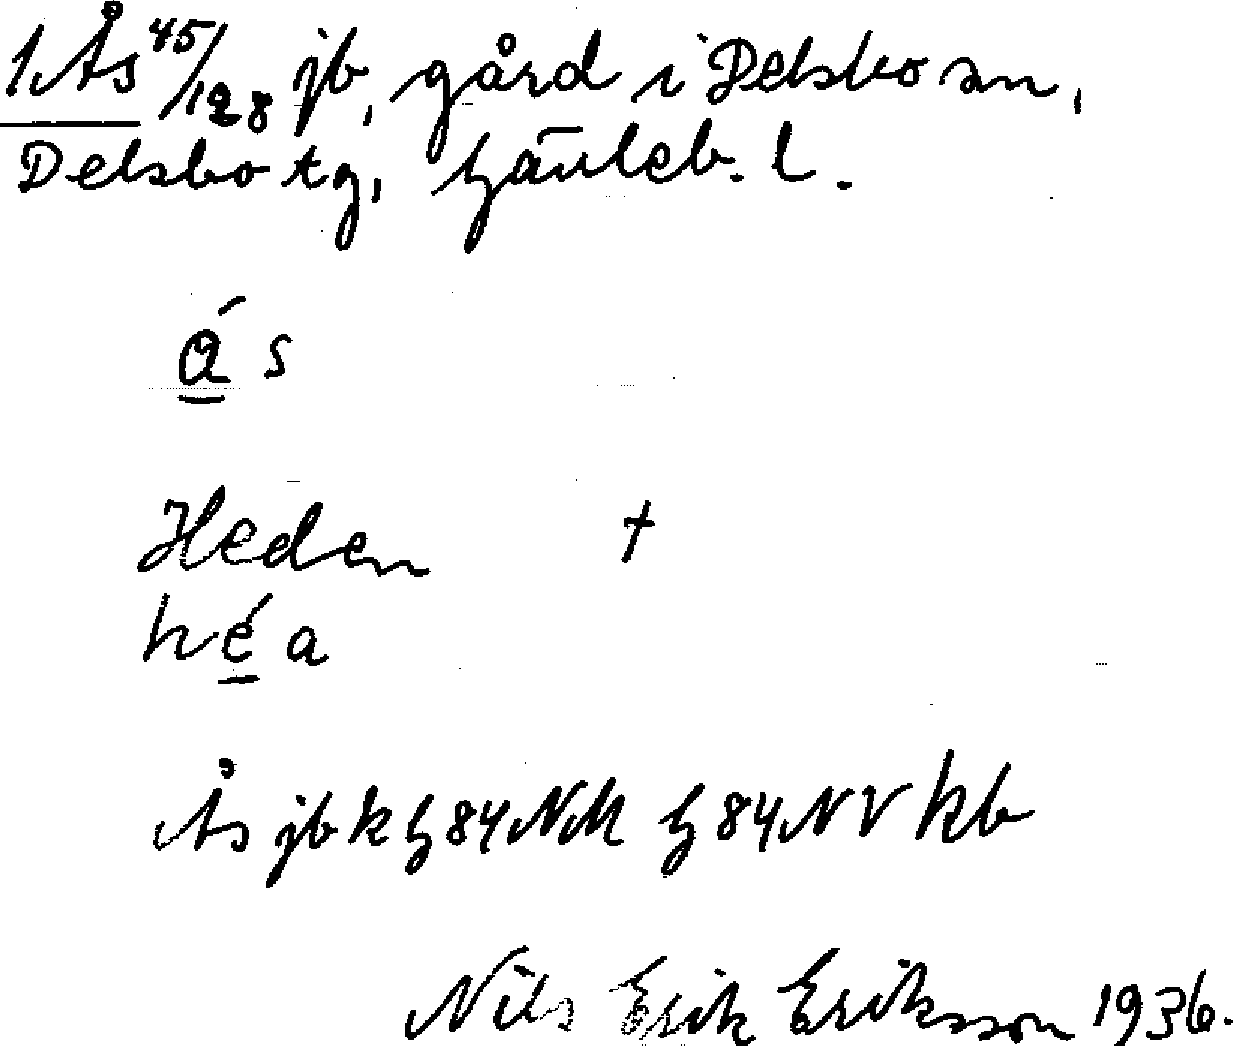 1 Ås 45/128 jb, gård i Delsbo sn,
Delsbo tg, Gävleb. l.
á s
Heden †
h é a
Ås jb k G 84 NM G 84 NV kb
Nils Erik Eriksson 1936.